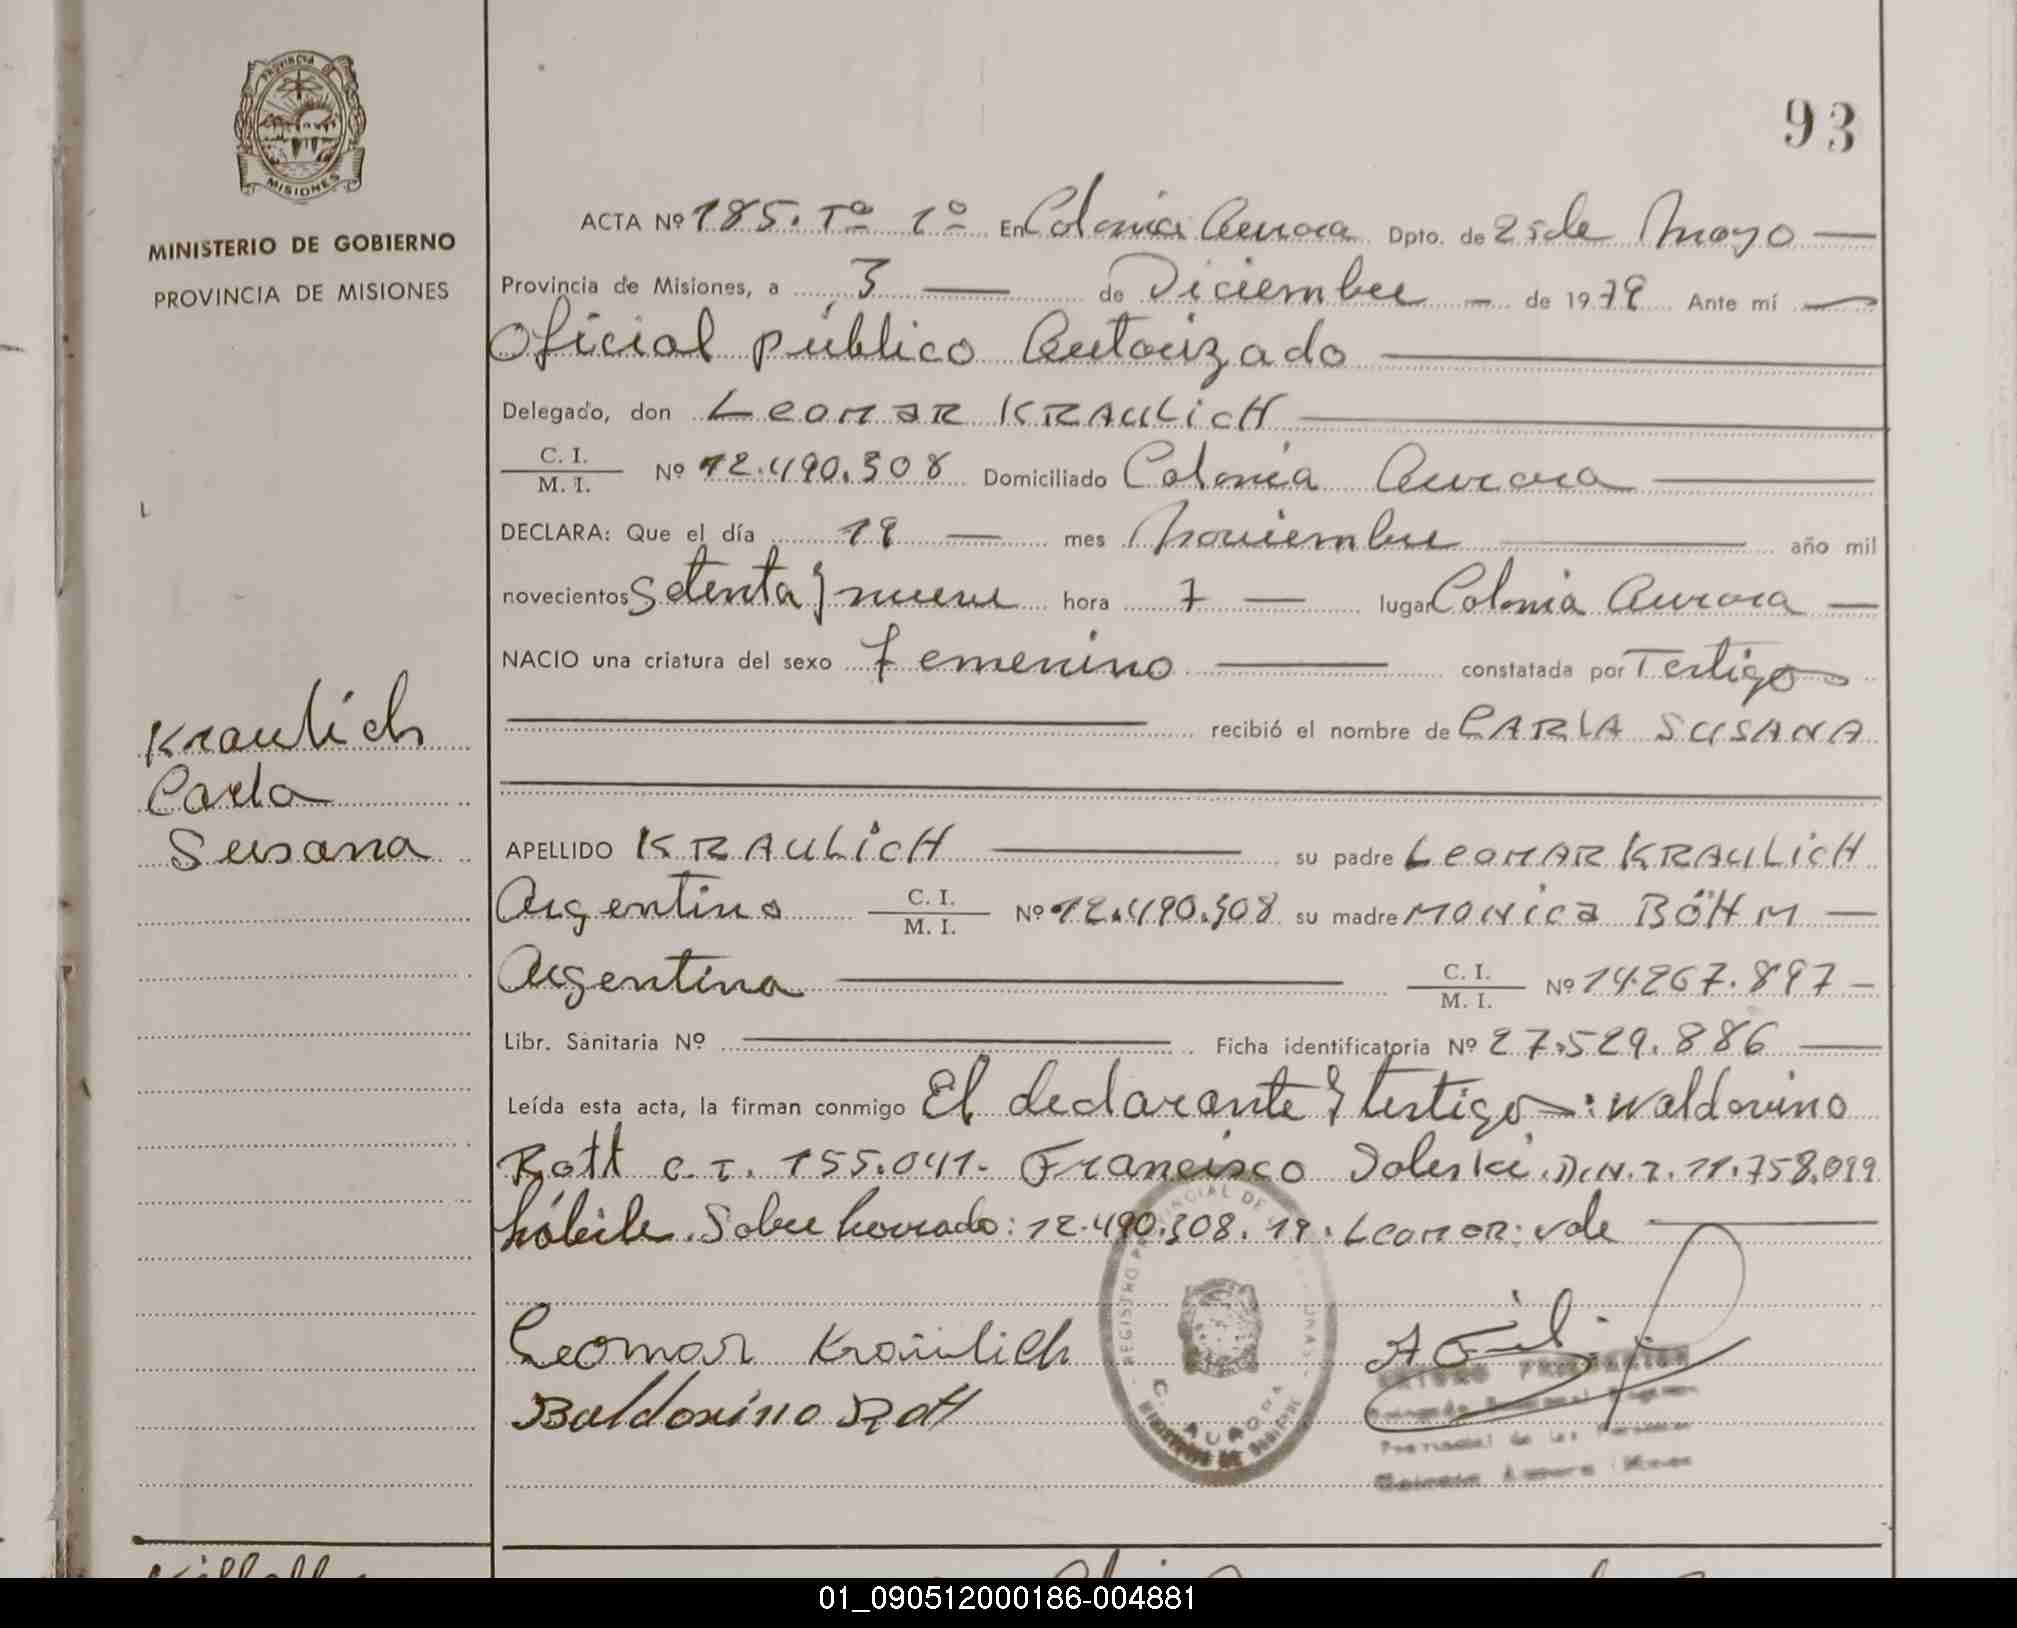 PROVINCIA DE
MISIONES
MINISTERIO DE GOBIERNO
PROVINCIA DE MISIONES
93
ACTA Nº 185. Tº 1º En Colonia Aurora Dpto. de 25 de Mayo
Provincia de Misiones, a 3 de Diciembre de 1979 Ante mí
Oficial público Autorizado
Delegado, don LEOMAR KRAULICH
C. I. / M. I. Nº 12.490.308 Domiciliado Colonia Aurora
DECLARA: Que el día 19 mes Noviembre año mil
novecientos Setenta y nueve hora 7 lugar Colonia Aurora
NACIO una criatura del sexo femenino constatada por Testigo
recibió el nombre de CARLA SUSANA
Kraulich
Carla
Susana
APELLIDO KRAULICH su padre LEOMAR KRAULICH
Argentino C. I. / M. I. Nº 12.490.308 su madre MONICA BÖHM
Argentina C. I. / M. I. Nº 14.267.897
Libr. Sanitaria Nº Ficha identificatoria Nº 27.529.886
Leída esta acta, la firman conmigo El declarante y testigo: Waldovino
Rott C.I. 155.041. Francisco D.N.I. 11.758.099
hábile. Sobre borrado: 12.490.308. 19. LEOMAR: vale
Leomar Kraulich
Baldovino Rott
REGISTRO PROVINCIAL DE
C. AURORA
MINISTERIO DE GOBIERNO
01_090512000186-004881